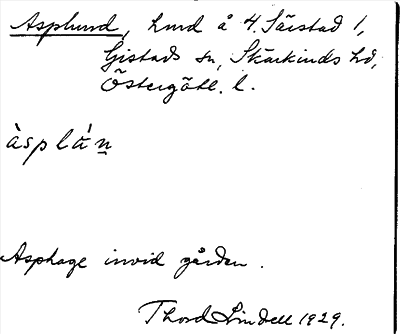 Asplund, hmd å 4. Särstad 1,
Gistads sn, Skärkinds hd,
Östergötl. l.
àsplán̲
Asphage invid gården.
Thord Lindell 1929.